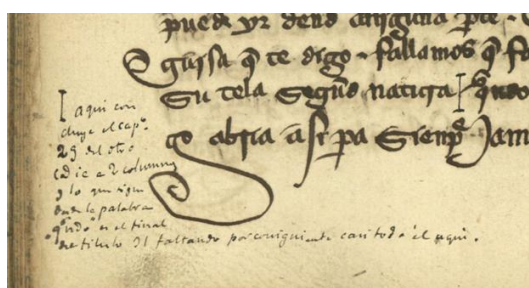 puedē yr dend aninguna pte.
guisa q̄ te digo. fallamos q̄ fa
Su tela Segūd natura quedo
go abria asi pa Sienpe Jam
I aqui con
cluye el capº.
29 del otro
codice a 2 columnas
y lo que sigue
desde la palabra
"quedo" es el final
del titulo 31 faltando por consiguiente casi todo el aqui.